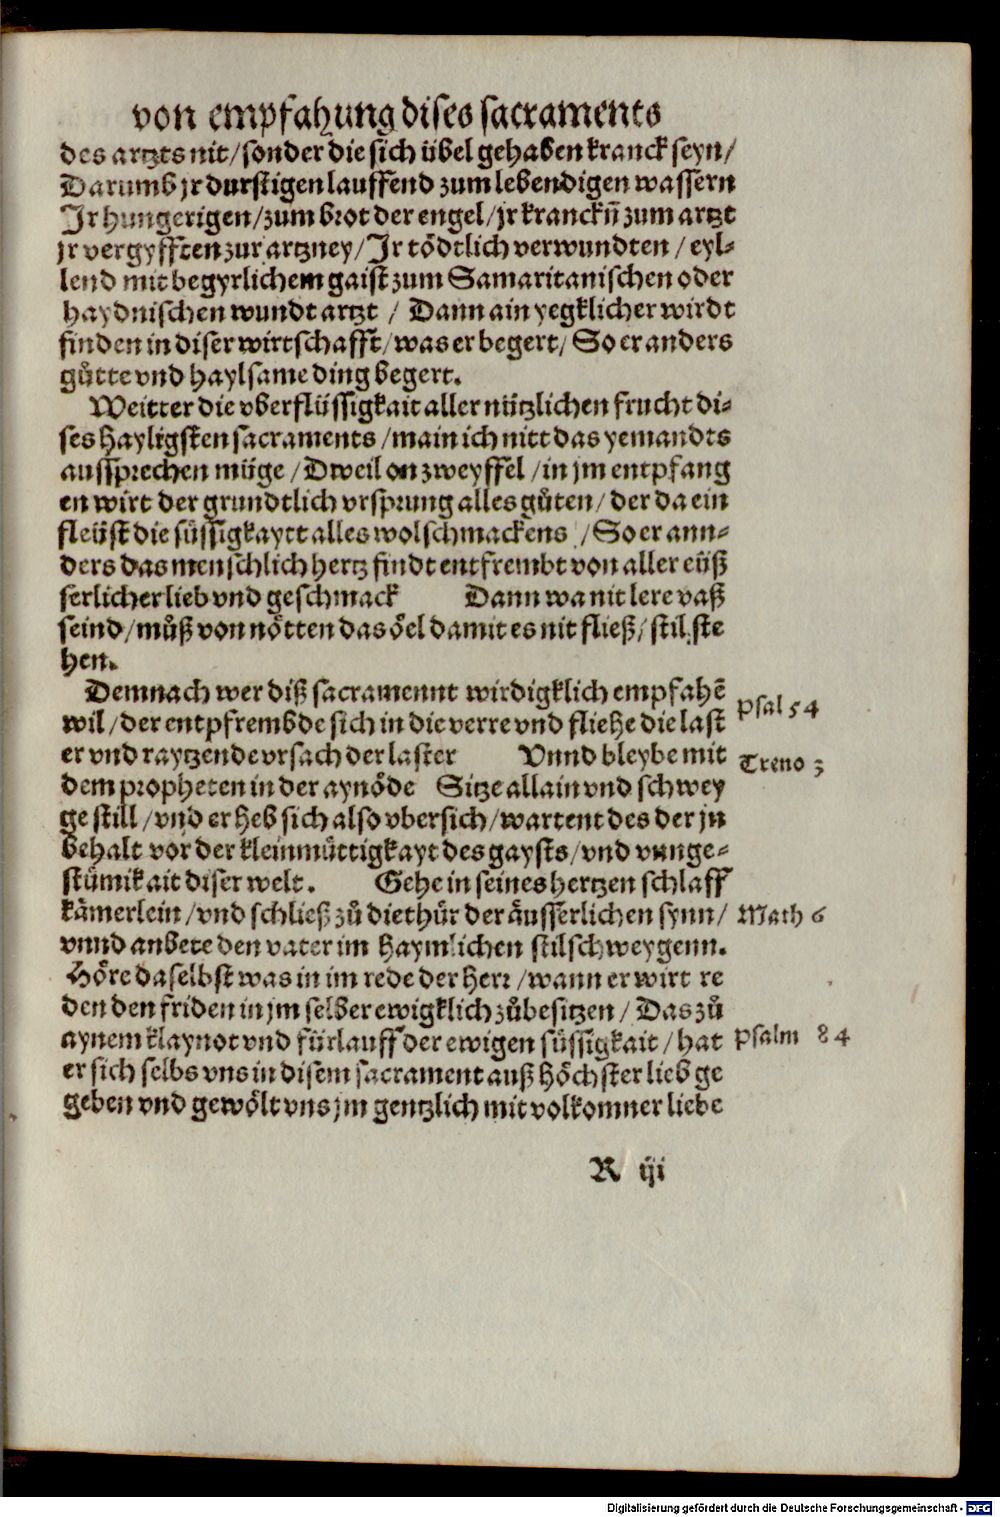 von empfahung dises sacraments
des artzts nit/sonder die sich übel gehaben kranck seyn/
Darumb jr durstigen lauffend zum lebendigen wassern
Jr hungerigen/zum brot der engel/jr kranckn̄ zum artzt
jr vergyfften zur artzney/Jr tödtlich verwundten/eyl-
lend mit begyrlichem gaist zum Samaritanischen oder
haydnischen wundt artzt / Dann ain yegklicher wirdt
finden in diser wirtschafft/was er begert/ So er anders
gůtte vnd haylsame ding begert.
Weitter die vberflüssigkait aller nützlichen frucht di-
ses hayligsten sacraments/main ich nitt das yemandts
aussprechen müge/Dweil on zweyffel/in jm entpfang
en wirt der grundtlich vrsprung alles gůten/der da ein
fleüst die süssigkaytt alles wolschmackens /So er ann-
ders das menschlich hertz findt entfrembt von aller eüß
serlicher lieb vnd geschmack Dann wa nit lere vaß
seind/můß von nötten das öel damit es nit fließ/stil ste
hen.
Demnach wer diß sacramennt wirdigklich empfahē
wil/der entpfrembde sich in die verre vnd fliehe die last
Psal 54
er vnd raytzende vrsach der laster Vnnd bleybe mit
Treno 3
dem propheten in der aynöde Sitze allain vnd schwey
ge still/vnd erheb sich also vbersich/wartent des der jn
behalt vor der kleinmüttigkayt des gaysts/vnd vnnge-
stümikait diser welt. Gehe in seines hertzen schlaff
kämerlein/vnd schließ zů die thür der äusserlichen synn/
Math 6
vnnd anbete den vater im haymlichen stilschweygenn.
Höre daselbst was in im rede der Herr/wann er wirt re
den den friden in jm selber ewigklich zůbesitzen/Das zů
aynem klaynot vnd fürlauff der ewigen süssigkait/hat
Psalm 84
er sich selbs vns in disem sacrament auß höchster lieb ge
geben vnd gewölt vns jm gentzlich mit volkomner liebe
R iij
Digitalisierung gefördert durch die Deutsche Forschungsgemeinschaft - DFG